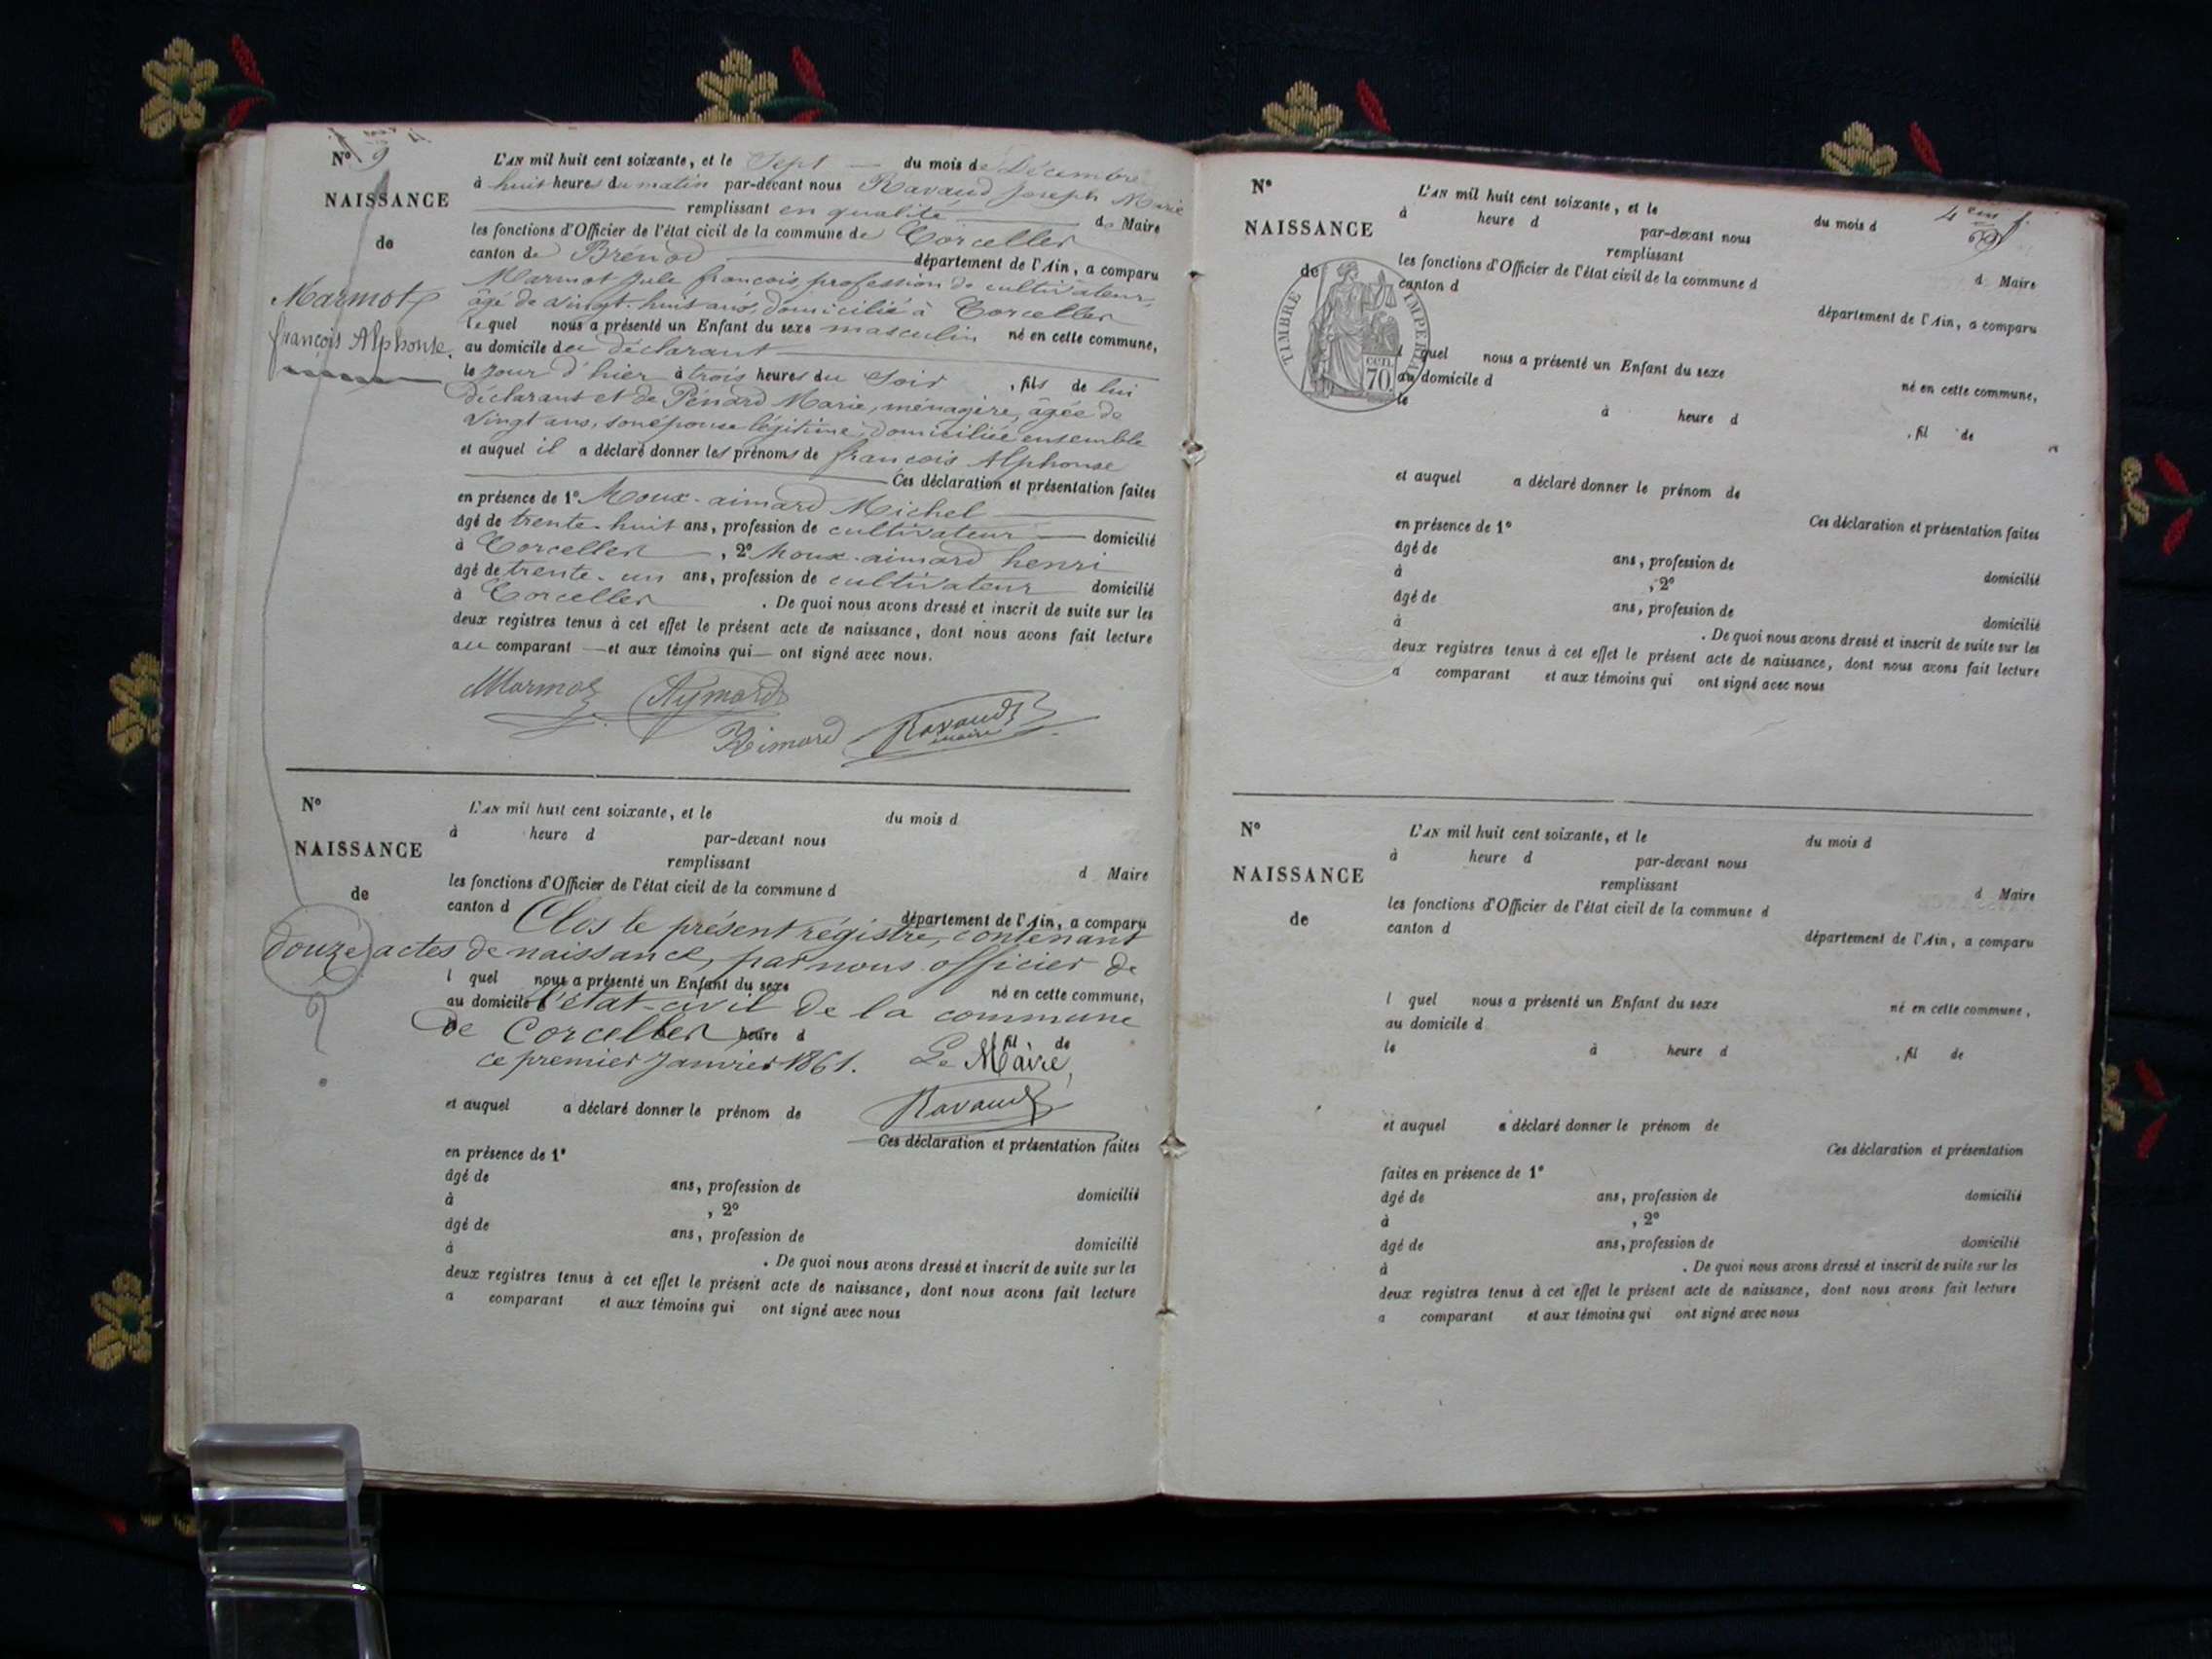 N° 9
NAISSANCE
de
Marmot
françois Alphonse.
L'AN mil huit cent soixante, et le Sept du mois de Décembre
à huit heures du matin par-devant nous Ravaud Joseph Marie
remplissant en qualité de Maire
les fonctions d'Officier de l'état civil de la commune de Corcelles
canton de Brénod département de l'Ain, a comparu
Marmot Jule françois, profession de cultivateur,
âgé de vingt-huit ans, domicilié à Corcelles
lequel nous a présenté un Enfant du sexe masculin né en cette commune,
au domicile du déclarant
le jour d'hier à trois heures du soir, fils de lui
déclarant et de Penard Marie, ménagère, âgée de
vingt ans, son épouse légitime, domiciliée ensemble
et auquel il a déclaré donner les prénoms de françois Alphonse
Ces déclaration et présentation faites
en présence de 1° Moux-aimard Michel
âgé de trente-huit ans, profession de cultivateur domicilié
à Corcelles, 2° Moux-aimard henri
âgé de trente-un ans, profession de cultivateur domicilié
à Corcelles. De quoi nous avons dressé et inscrit de suite sur les
deux registres tenus à cet effet le présent acte de naissance, dont nous avons fait lecture
au comparant et aux témoins qui ont signé avec nous.
Marmot Aymard
Aimard Ravaud
maire
N°
NAISSANCE
de
L'AN mil huit cent soixante, et le du mois d
à heure d par-devant nous
remplissant d Maire
les fonctions d'Officier de l'état civil de la commune d
canton d département de l'Ain, a comparu
Clos le présent régistre, contenant
douze actes de naissance, par nous officier de
l quel nous a présenté un Enfant du sexe né en cette commune,
au domicile d
l'état-civil de la commune
de Corcelles
le à heure d , fil de
ce premier Janvier 1861. Le Maire,
et auquel a déclaré donner le prénom de
Ravaud
Ces déclaration et présentation faites
en présence de 1°
âgé de ans, profession de domicilié
à , 2°
âgé de ans, profession de domicilié
à . De quoi nous avons dressé et inscrit de suite sur les
deux registres tenus à cet effet le présent acte de naissance, dont nous avons fait lecture
a comparant et aux témoins qui ont signé avec nous
4
N°
NAISSANCE
de
TIMBRE IMPERIAL
cen
70
L'AN mil huit cent soixante, et le du mois d
à heure d par-devant nous
remplissant d Maire
les fonctions d'Officier de l'état civil de la commune d
canton d département de l'Ain, a comparu
l quel nous a présenté un Enfant du sexe né en cette commune,
au domicile d
le à heure d , fil de
et auquel a déclaré donner le prénom de
Ces déclaration et présentation faites
en présence de 1°
âgé de ans, profession de domicilié
à , 2°
âgé de ans, profession de domicilié
à . De quoi nous avons dressé et inscrit de suite sur les
deux registres tenus à cet effet le présent acte de naissance, dont nous avons fait lecture
a comparant et aux témoins qui ont signé avec nous
N°
NAISSANCE
de
L'AN mil huit cent soixante, et le du mois d
à heure d par-devant nous
remplissant d Maire
les fonctions d'Officier de l'état civil de la commune d
canton d département de l'Ain, a comparu
l quel nous a présenté un Enfant du sexe né en cette commune,
au domicile d
le à heure d , fil de
et auquel a déclaré donner le prénom de
Ces déclaration et présentation
faites en présence de 1°
âgé de ans, profession de domicilié
à , 2°
âgé de ans, profession de domicilié
à . De quoi nous avons dressé et inscrit de suite sur les
deux registres tenus à cet effet le présent acte de naissance, dont nous avons fait lecture
a comparant et aux témoins qui ont signé avec nous